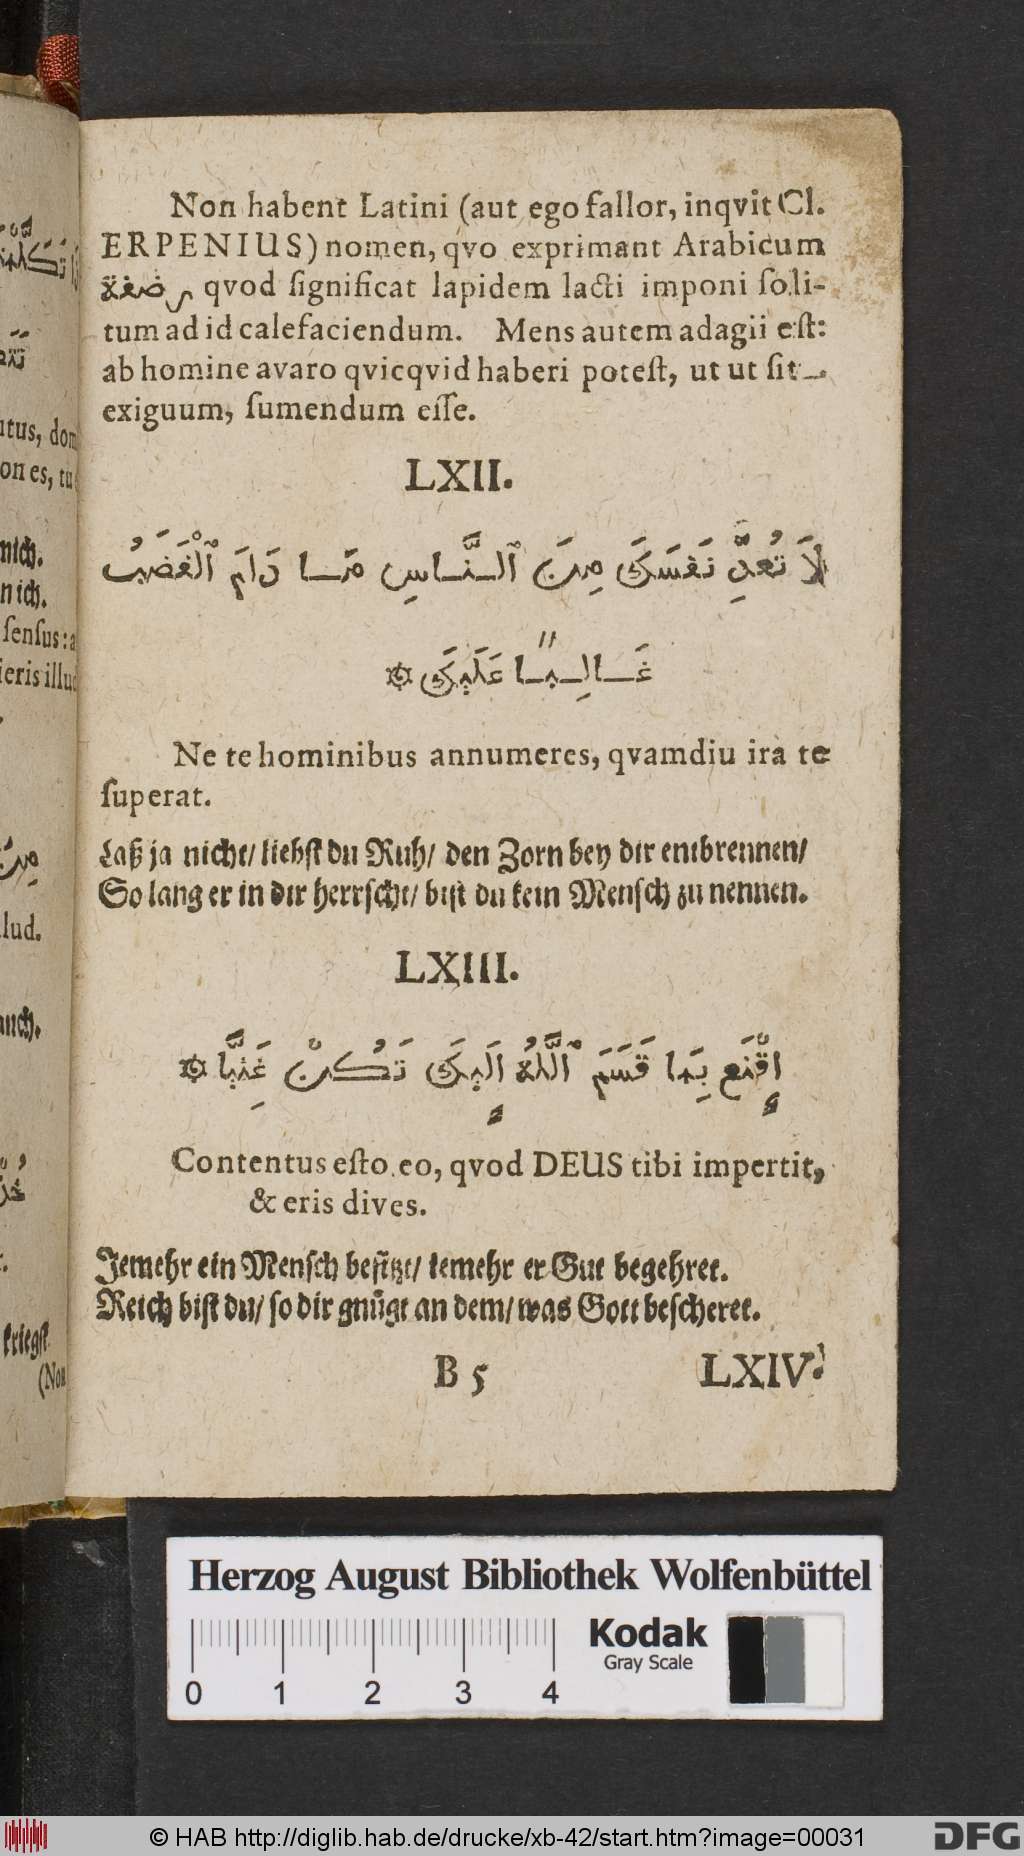 Non habent Latini (aut ego fallor, inqvit Cl.
ERPENIUS) nomen, qvo exprimant Arabicum
رضفة qvod ſignificat lapidem lacti imponi ſoli-
tum ad id calefaciendum. Mens autem adagii eſt:
ab homine avaro qvicqvid haberi poteſt, ut ut ſit
exiguum, ſumendum eſſe.
LXII.
لَا تُعِدِّ نَفْسَكَ مِنَ ٱلنَّاسِ مَا دَامَ ٱلْغَضَبُ
غَالِبًا عَلَيْكَ ۞
Ne te hominibus annumeres, qvamdiu ira te
ſuperat.
Laß ja nicht/ liebſt du Ruh/ den Zorn bey dir entbrennen/
So lang er in dir herrſcht/ biſt du kein Menſch zu nennen.
LXIII.
إِقْنَع بِمَا قَسَمَ ٱللَّهُ إِلَيْكَ تَكُنْ غَنِيًّا ۞
Contentus eſto eo, qvod DEUS tibi impertit,
& eris dives.
Jemehr ein Menſch beſitzt/ iemehr er Gut begehret.
Reich biſt du/ ſo dir gnügt an dem/ was Gott beſcheret.
B 5 LXIV.
nich.
nich.
ſenſus: a
lud.
kriegſt
(Non
Herzog August Bibliothek Wolfenbüttel
Kodak
Gray Scale
0 1 2 3 4
© HAB http://diglib.hab.de/drucke/xb-42/start.htm?image=00031
DFG